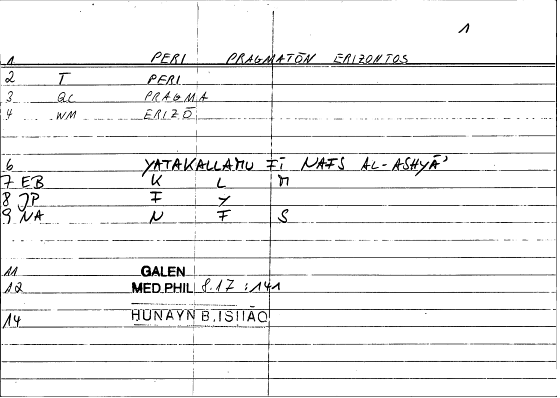 1
1 PERI PRAGMATŌN ERIZONTOS
2 T PERI
3 QC PRAGMA
4 WM ERIZŌ
6 YATAKALLAMU FĪ NAFS AL-ASHYĀ'
7 EB K L M
8 JP F Y
9 NA N F S
11 GALEN
12 MED.PHIL 8.17 :141
14 HUNAYN B.ISHĀQ